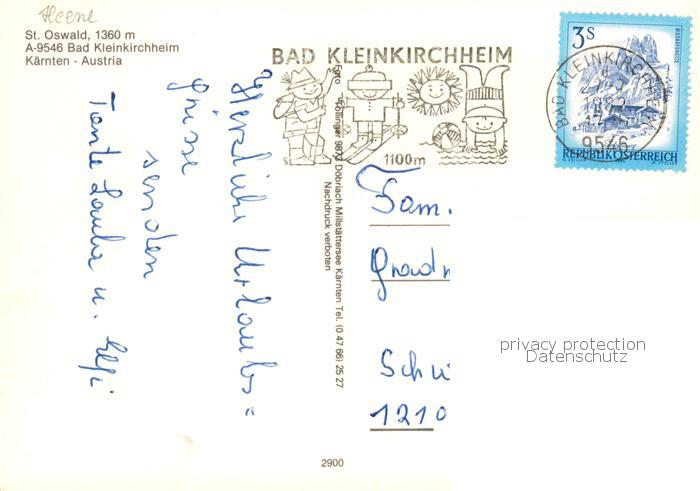 Heene
St. Oswald, 1360 m
A-9546 Bad Kleinkirchheim
Kärnten - Austria
BAD KLEINKIRCHHEIM
1100m
3S
BAD KLEINKIRCHHEIM
9546
REPUBLIK ÖSTERREICH
Herzliche Urlaubs=
grüsse
senden
Tante u. Elfi
Foto 9873 Döbriach Millstättersee Kärnten Tel. (0 47 66) 25 27
Nachdruck verboten
Fam.
Schu
1210
privacy protection
Datenschutz
2900